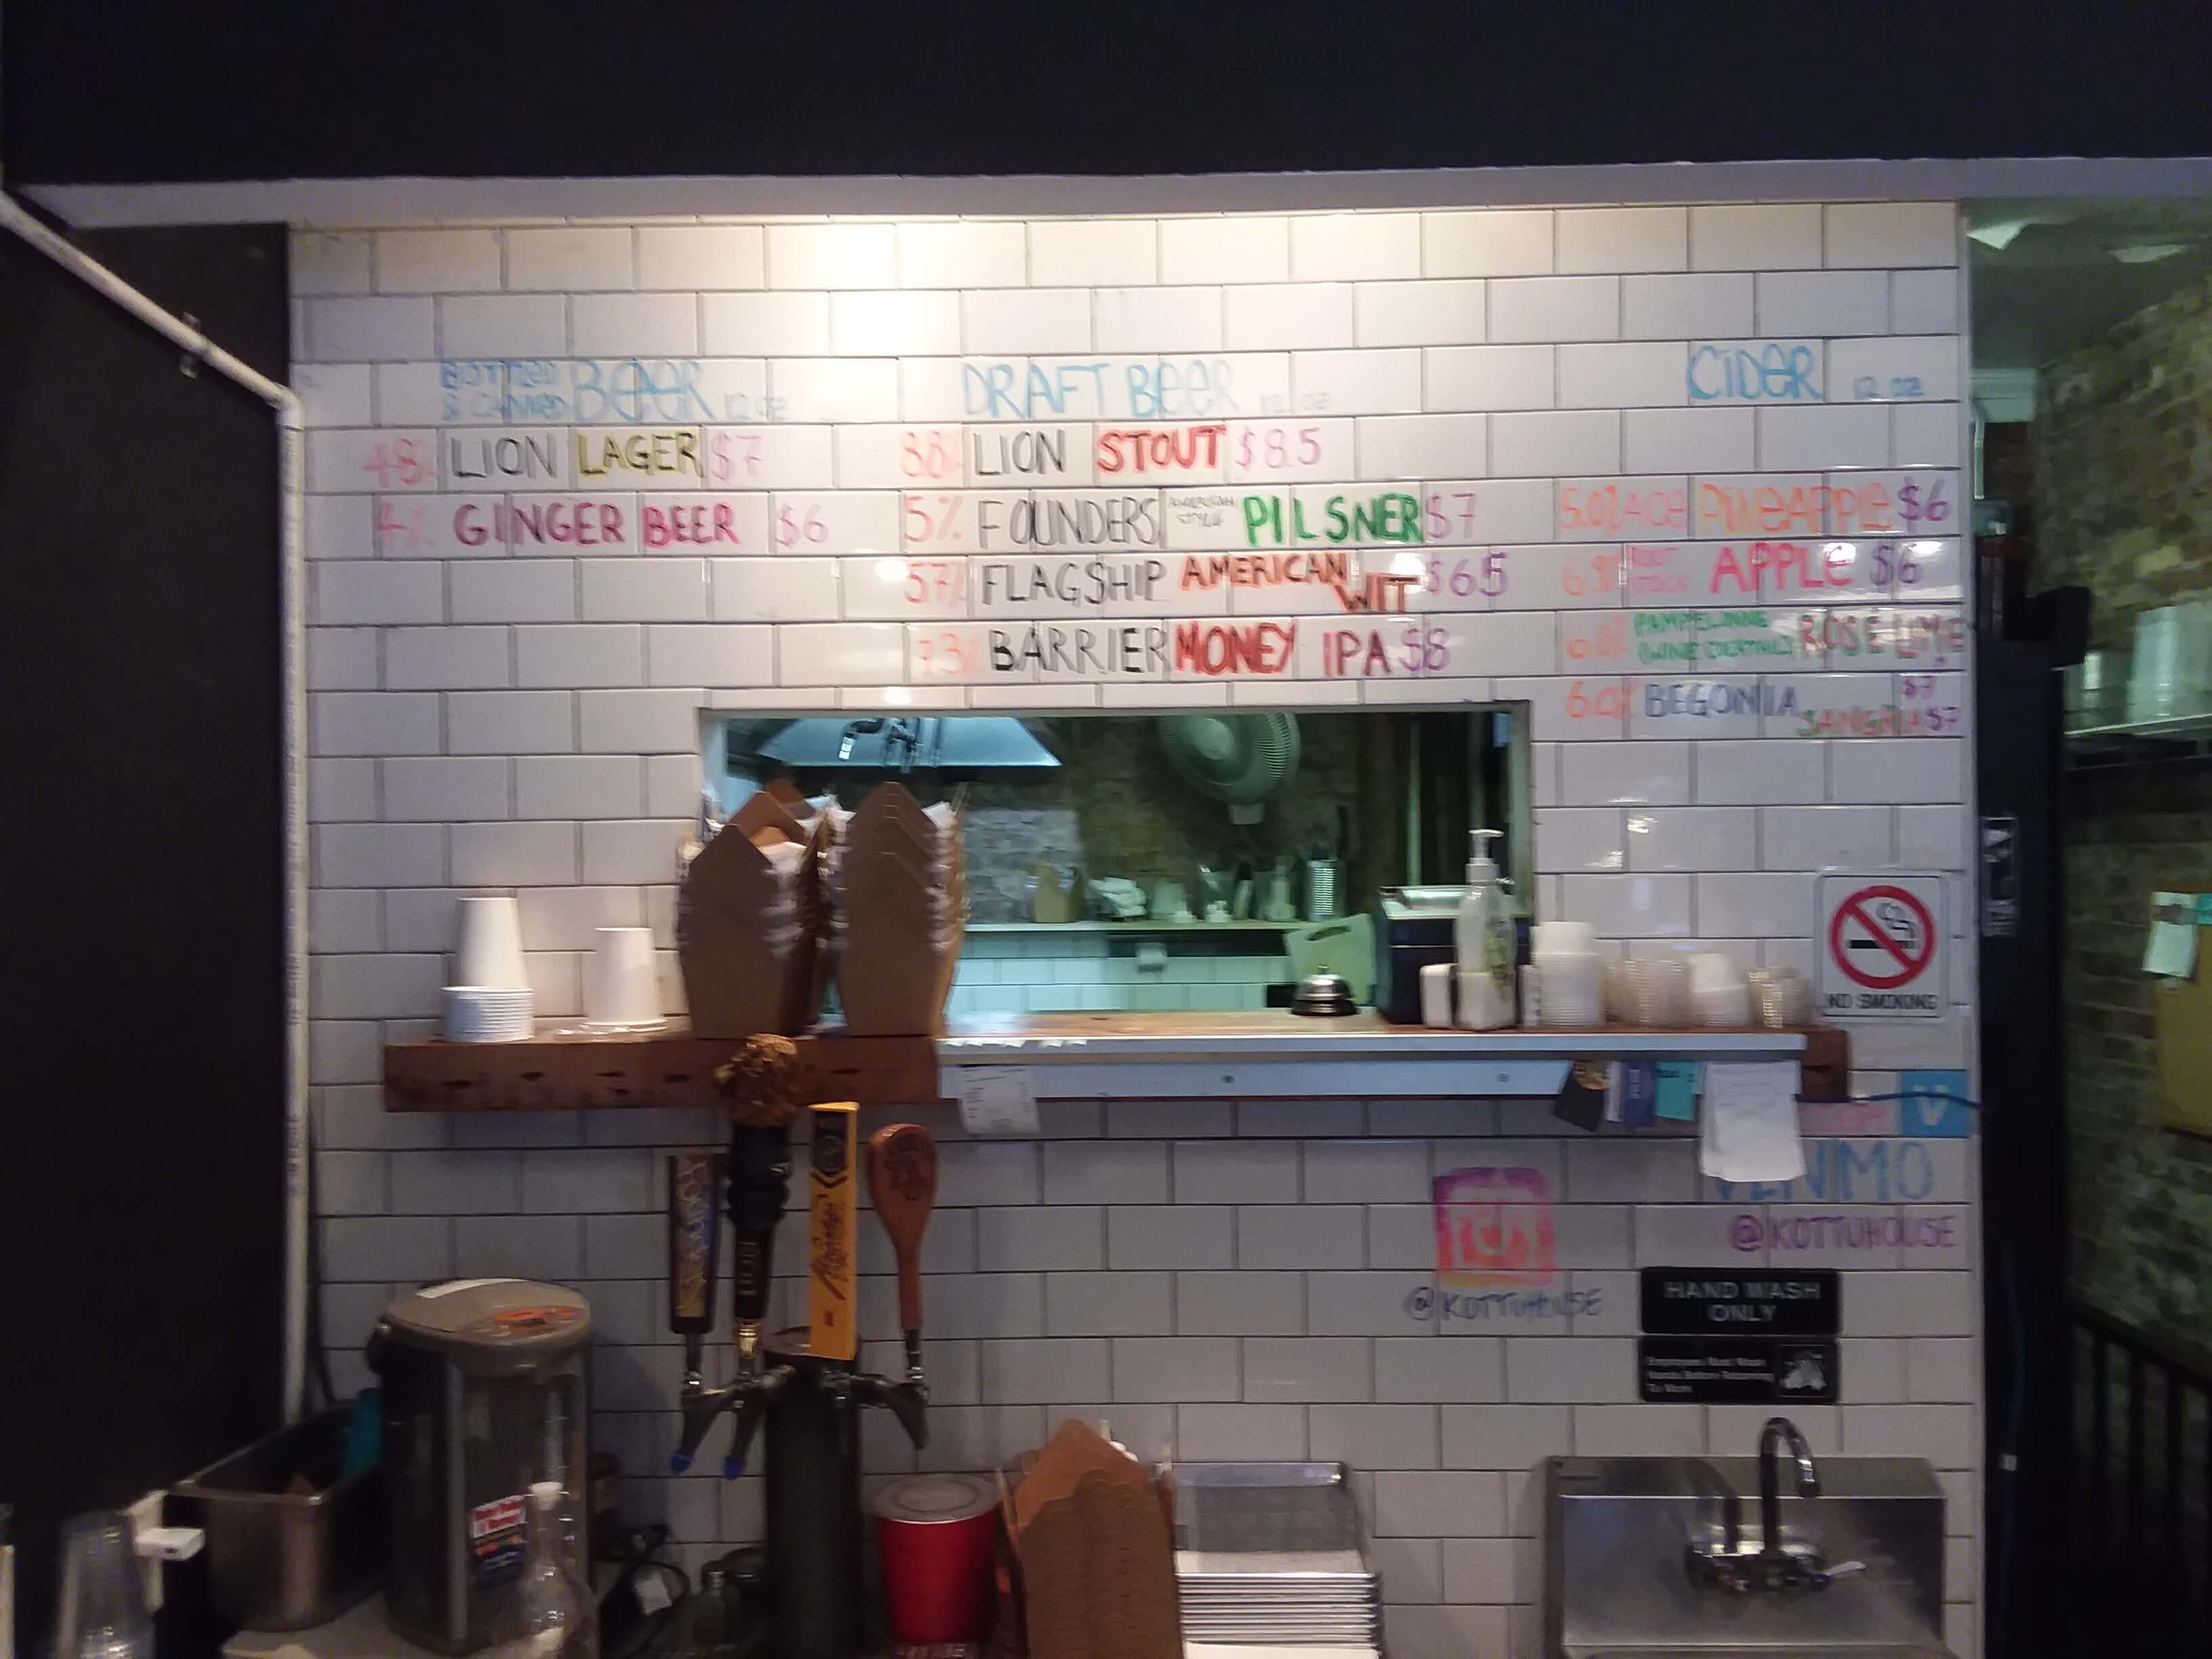 BOTTLED & CANNED BEER 12 oz
4.8% LION LAGER $7
4% GINGER BEER $6
DRAFT BEER 12 oz
8.8% LION STOUT $8.5
5% FOUNDERS AMERICAN STYLE PILSNER $7
5.7% FLAGSHIP AMERICAN WIT $6.5
7.3% BARRIER MONEY IPA $8
CIDER 12 oz
5.0% ACE PINEAPPLE $6
6.9% APPLE $6
6.0% PAMPELONNE (WINE COCKTAILS) ROSÉ LIME $7
6.0% BEGONIA SANGRIA $7
NO SMOKING
FOUNDERS
LION
Barrier
V
VENMO
@KOTTUHOUSE
@KOTTUHOUSE
HAND WASH
ONLY
Employees Must Wash
Hands Before Returning
To Work